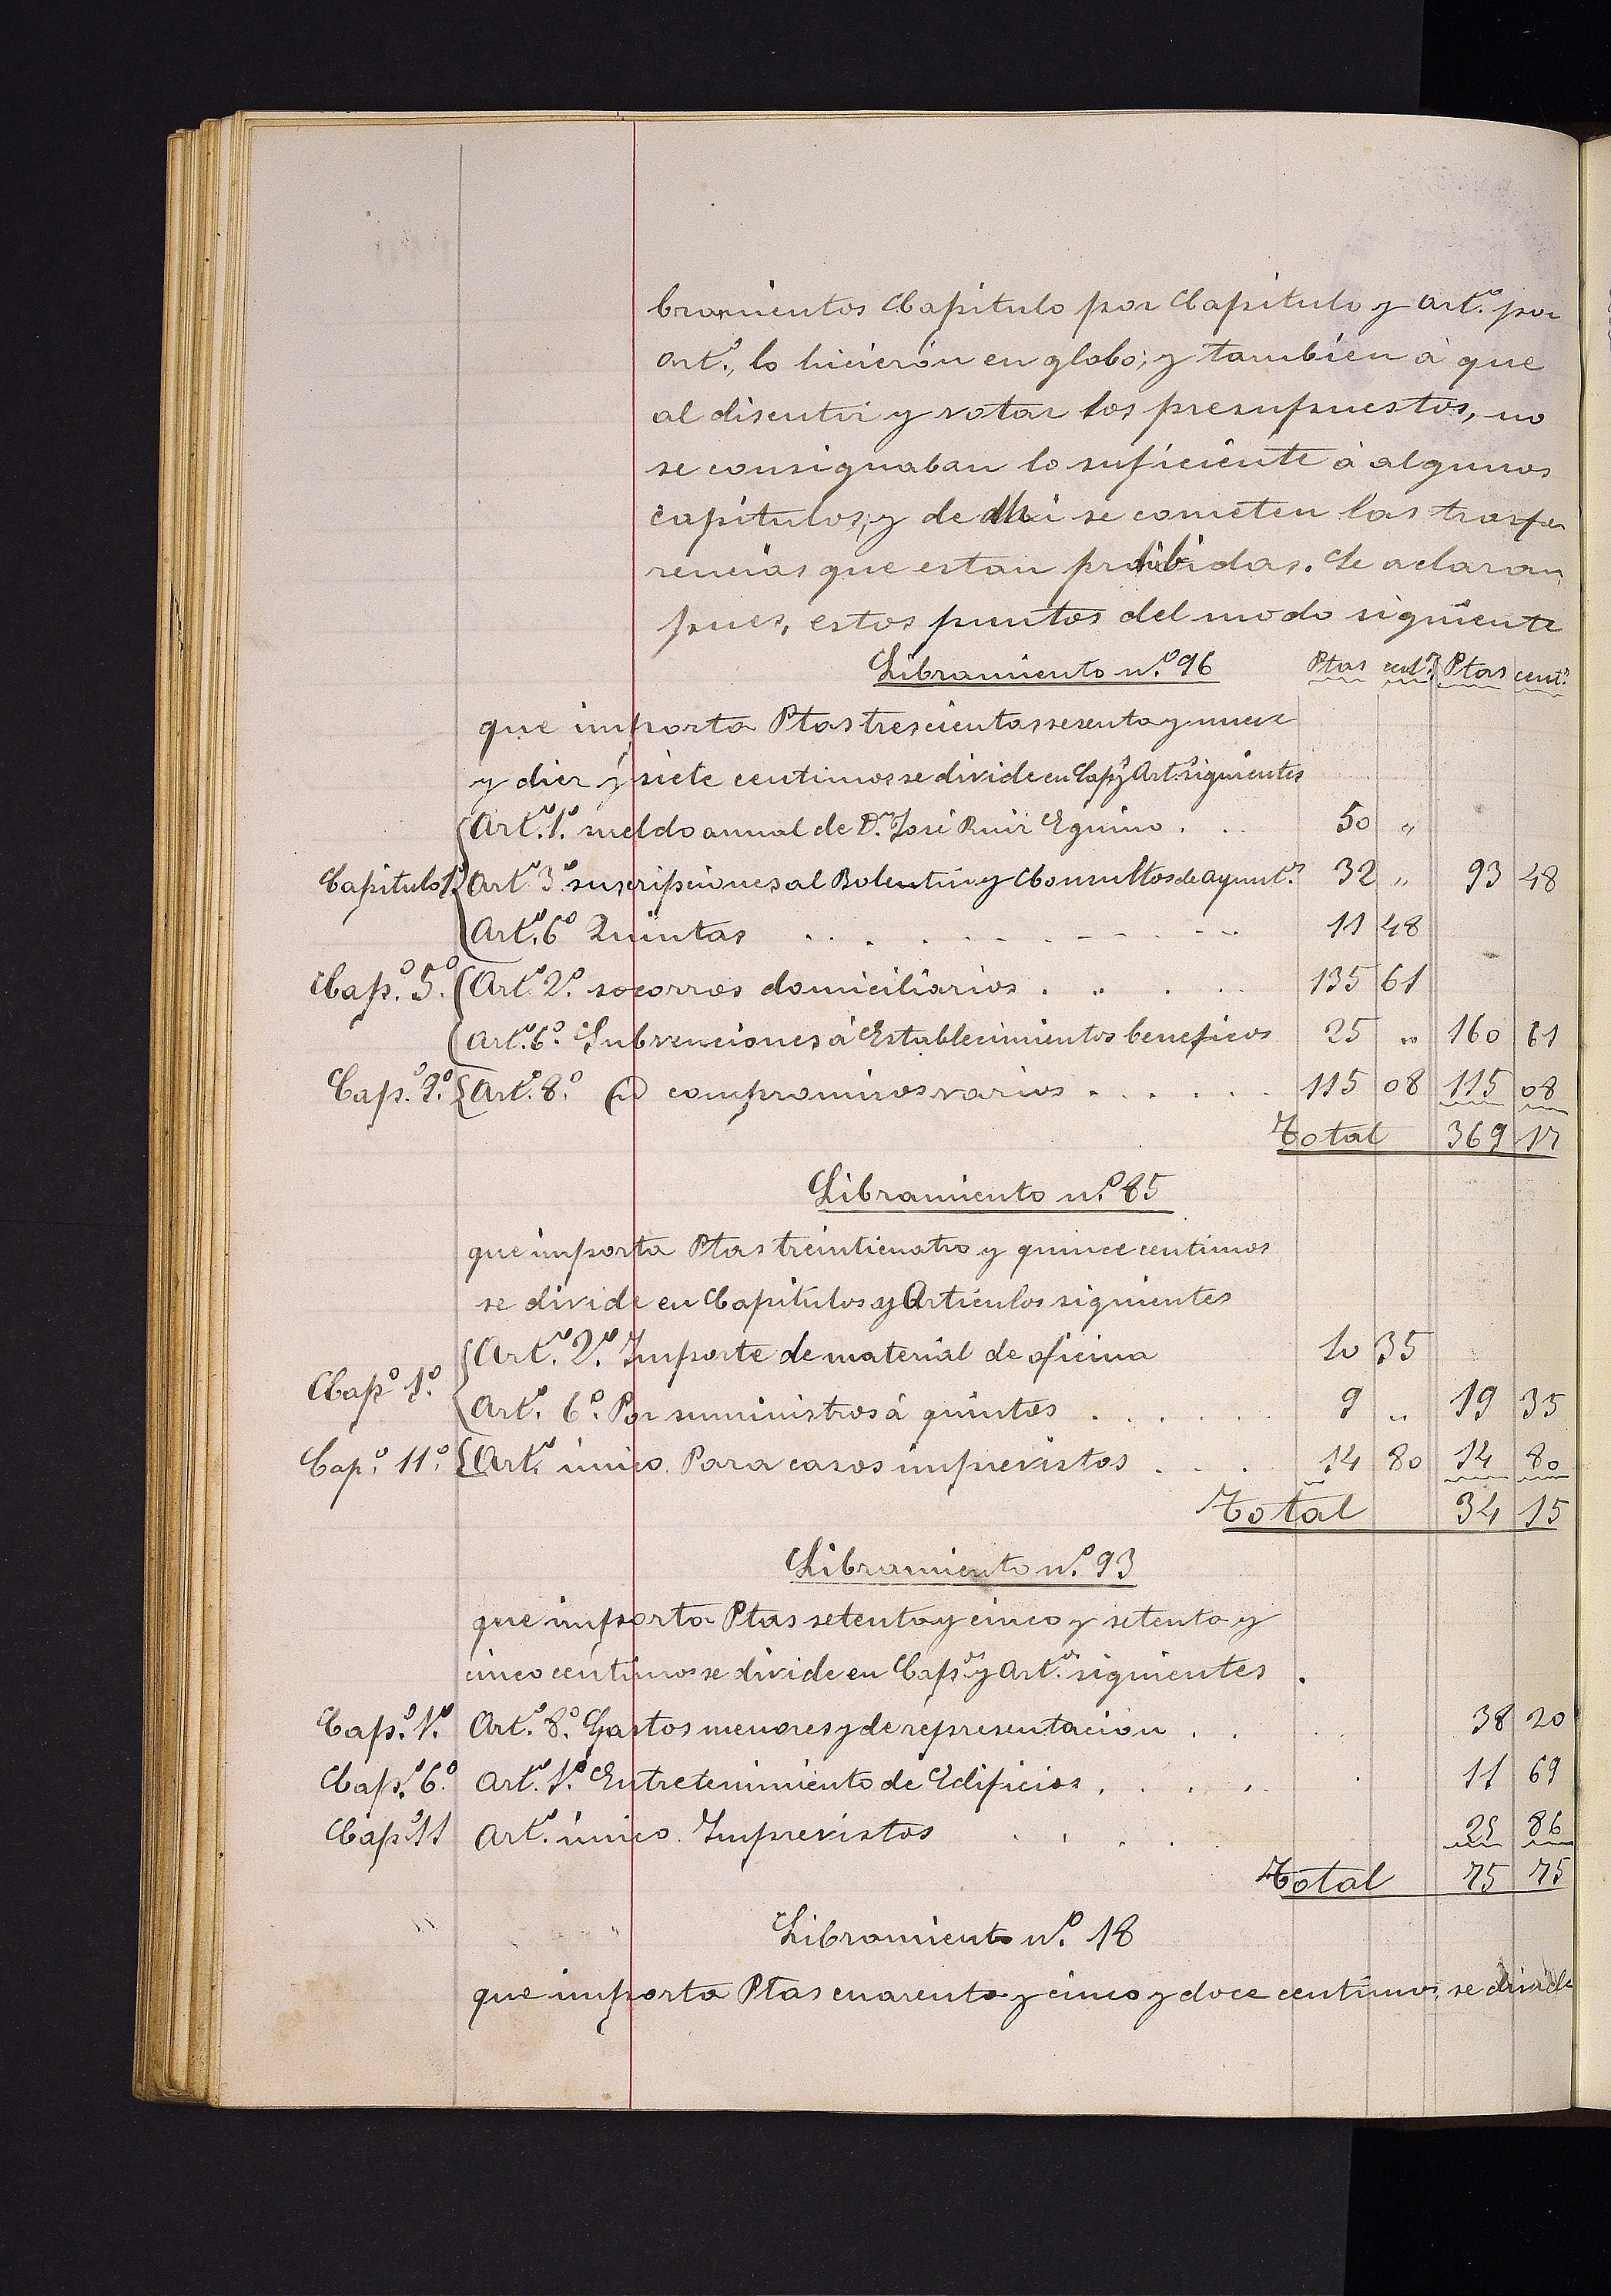 bramientos Capitulo por Capitulo y art.º por
art.º, lo hicierón en globo; y tambien à que
al discutir y votar los presupuestos, no
se consignaban lo suficiente à algunos
capitulos; y de ahi se cometen las trasfe
rencias que estan prohibidas. Se aclaran,
pues, estos puntos del modo siguiente
Libramiento n.º 96 Ptas cent.s Ptas cent.s
que importa Ptas trescientas sesenta y nueve
y diez y siete centimos se divide en Cap.s y Art.s siguientes
Art.º 1.º sueldo annual de D.n José Ruiz Eguino . . . 50 „
Capitulo 1.º Art.º 3.º suscripciones al Bolentin y Consultos de ayunt.os 32 „ 93 48
Art.º 6.º Quintas . . . . . . . . 11 48
Cap.º 5.º Art.º 2.º socorros domiciliarios . . . . . 135 61
Art.º 6.º Subvenciones à Establecimientos beneficos 25 „ 160 61
Cap.º 9.º Art.º 8.º compromisos varios . . . . . . 115 08 115 08
Total 369 17
Libramiento n.º 85
que importa Ptas treinticuatro y quince centimos
se divide en Capitulos y Articulos siguientes
Art.º 2.º Importe de material de oficina 10 35
Cap.º 1.º
Art.º 6.º Por suministros à quintos . . . . . 9 „ 19 35
Cap.º 11.º Art.º único. Para casos imprevistos . . . 14 80 14 80
Total 34 15
Libramiento n.º 93
que importa Ptas setenta y cinco y setenta y
cinco centimos se divide en Cap.os y Art.os siguientes
Cap.º 1.º Art.º 8.º Gastos menores y de representacion . . 38 20
Cap.º 6.º Art.º 1.º Entretenimiento de Edificios . . . . . 11 69
Cap.º 11 Art.º único. Imprevistos . . . . 25 86
Total 75 75
Libramiento n.º 18
que importa Ptas cuarenta y cinco y doce centimos, se divide